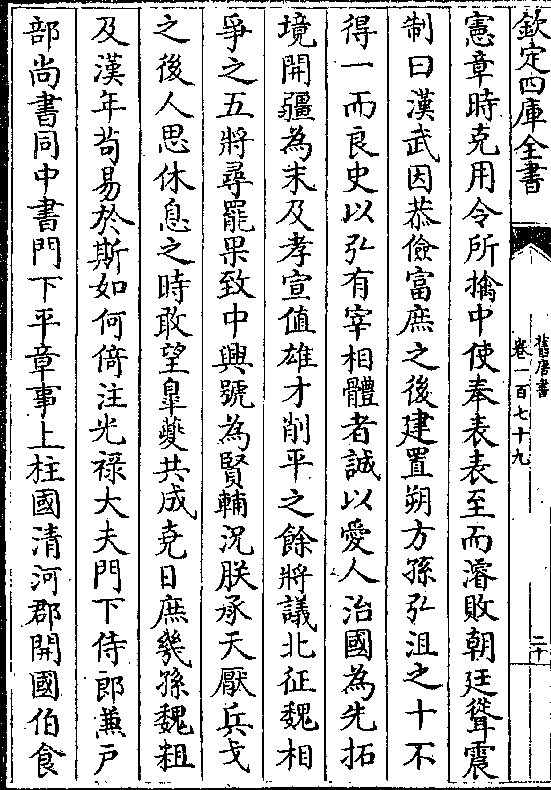 欽定四庫全書
舊唐書
卷一百七十九
二十
憲章時克用令所擒中使奉表表至而濬敗朝廷聳震
制曰漢武因恭儉富庶之後建置朔方孫弘沮之十不
得一而良史以弘有宰相體者誠以愛人治國為先拓
境開疆為末及孝宣值雄才削平之餘將議北征魏相
爭之五將尋罷果致中興號為賢輔況朕承天厭兵戈
之後人思休息之時敢望臯夔共成堯日庶幾孫魏粗
及漢年茍易於斯如何倚注光禄大夫門下侍郎兼户
部尚書同中書門下平章事上柱國清河郡開國伯食